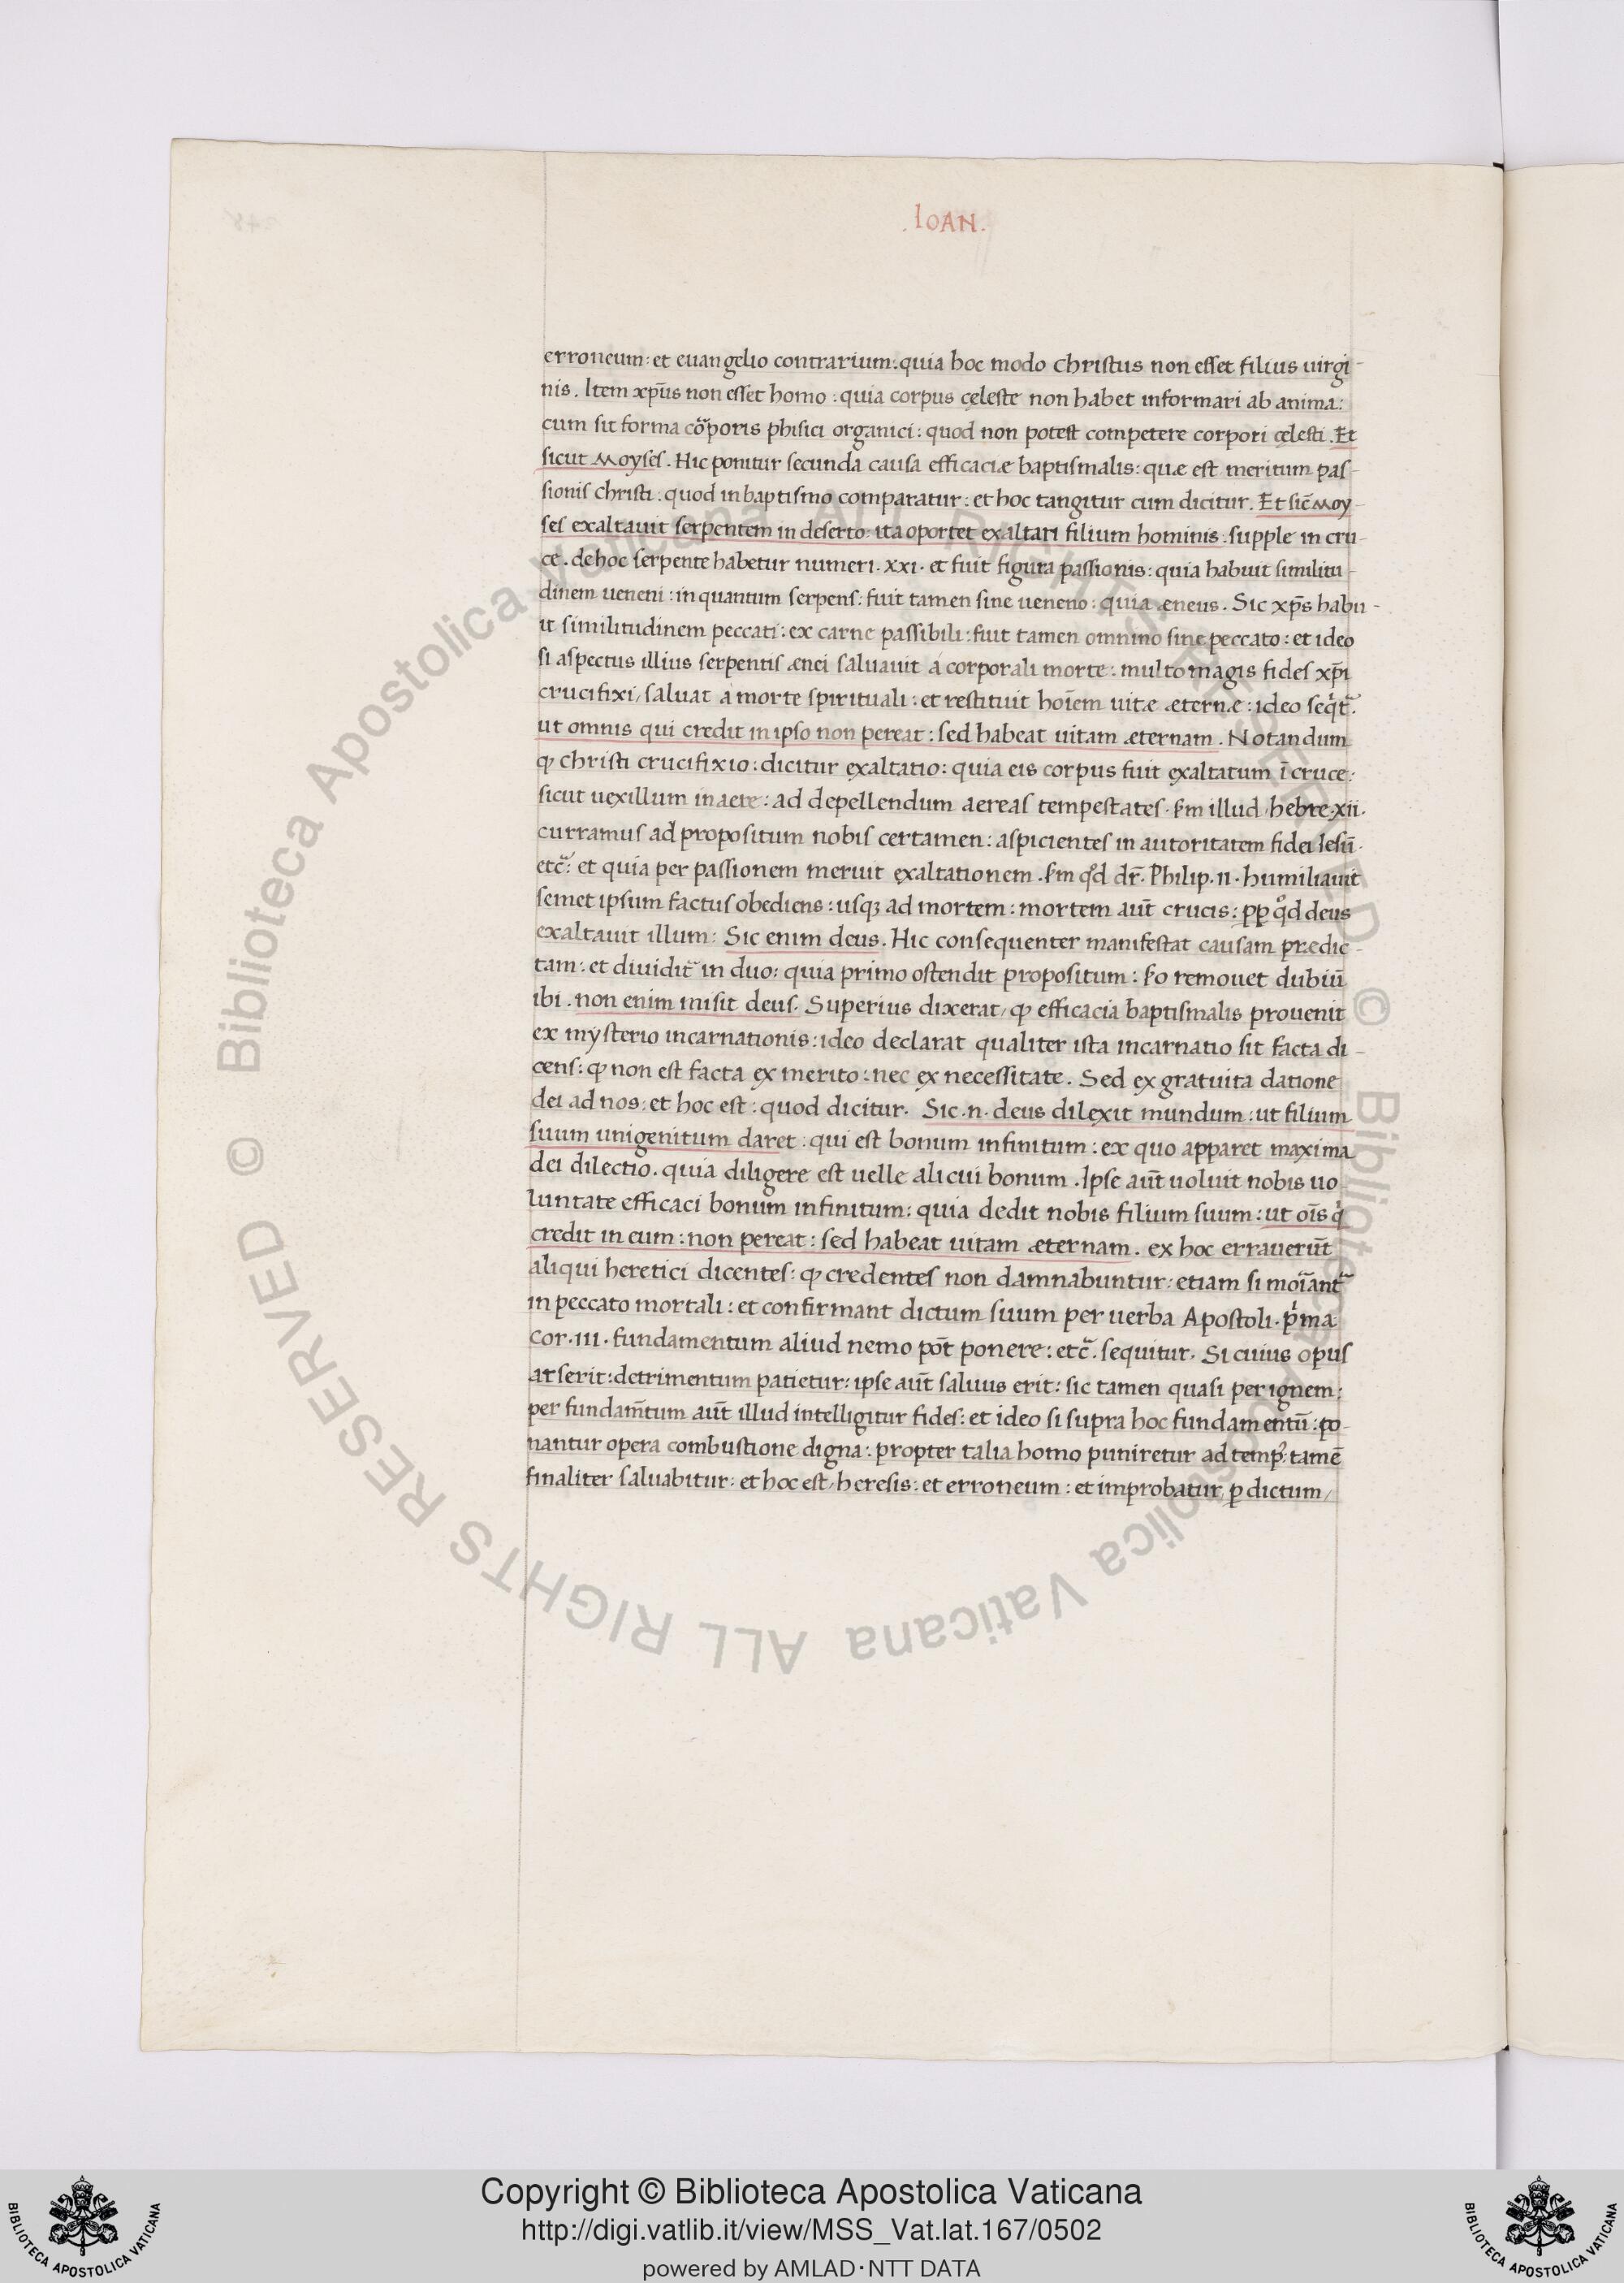 .IOAN.
erroneum: et euangelio contrarium: quia hoc modo christus non esset filius uirgi-
nis. Item xp̄us non esset homo: quia corpus cęleste non habet informari ab anima:
cum sit forma corporis phisici organici: quod non potest competere corpori cęlesti. Et
sicut Moyses. Hic ponitur secunda causa efficaciæ baptismalis: quæ est meritum pas-
sionis christi: quod in baptismo comparatur: et hoc tangitur cum dicitur. Et sic̄ Moy-
ses exaltauit serpentem in deserto: ita oportet exaltari filium hominis: supple in cru-
ce. de hoc serpente habetur numeri. xxi. et fuit figura passionis: quia habuit similitu-
dinem ueneni: in quantum serpens: fuit tamen sine ueneno: quia æneus. Sic xp̄s habu-
it similitudinem peccati: ex carne passibili: fuit tamen omnino sine peccato: et ideo
si aspectus illius serpentis ænei saluauit a corporali morte: multo magis fides xp̄i
crucifixi/ saluat a morte spirituali: et restituit hoīem uitæ æternæ: ideo seqͥt᷑.
ut omnis qui credit in ipso non pereat: sed habeat uitam æternam. Notandum
ꝙ christi crucifixio: dicitur exaltatio: quia eis corpus fuit exaltatum ī cruce:
sicut uexillum in aere: ad depellendum aereas tempestates. ẜm illud hebre. xii.
curramus ad propositum nobis certamen: aspicientes in autoritatem fidei Iesū.
etc̃: et quia per passionem meruit exaltationem. ẜm qͦd dr̄. Philip. ii. humiliauit
semet ipsum factus obediens: usqꝫ ad mortem: mortem aūt crucis: ꝓꝑ qͦd deus
exaltauit illum: Sic enim deus. Hic consequenter manifestat causam prædic-
tam: et diuidit᷑ in duo: quia primo ostendit propositum: ẜo remouet dubiū
ibi. non enim misit deus. Superius dixerat/ ꝙ efficacia baptismalis prouenit
ex mysterio incarnationis: ideo declarat qualiter ista incarnatio sit facta di-
cens: ꝙ non est facta ex merito: nec ex necessitate. Sed ex gratuita datione
dei ad nos: et hoc est: quod dicitur. Sic .n. deus dilexit mundum: ut filium
suum unigenitum daret: qui est bonum infinitum: ex quo apparet maxima
dei dilectio. quia diligere est uelle alicui bonum. Ipse aūt uoluit nobis uo-
luntate efficaci bonum infinitum: quia dedit nobis filium suum: ut oīs qͥ
credit in eum: non pereat: sed habeat uitam æternam. ex hoc errauerūt
aliqui heretici dicentes: ꝙ credentes non damnabuntur: etiam si moīant᷑
in peccato mortali: et confirmant dictum suum per uerba Apostoli. pͥma
cor. iii. fundamentum aliud nemo pōt ponere: etc̃. sequitur. Si cuius opus
arserit: detrimentum patietur: ipse aūt saluus erit: sic tamen quasi per ignem:
per fundam̄tum aūt illud intelligitur fides: et ideo si supra hoc fundamentū: po-
nantur opera combustione digna: propter talia homo puniretur ad temp᷒: tamē
finaliter saluabitur: et hoc est/ heresis: et erroneum: et improbatur ꝑ dictum/
© Biblioteca Apostolica Vaticana ALL RIGHTS RESERVED
© Biblioteca Apostolica Vaticana ALL RIGHTS RESERVED
Copyright © Biblioteca Apostolica Vaticana
http://digi.vatlib.it/view/MSS_Vat.lat.167/0502
powered by AMLAD·NTT DATA
BIBLIOTECA APOSTOLICA VATICANA
BIBLIOTECA APOSTOLICA VATICANA